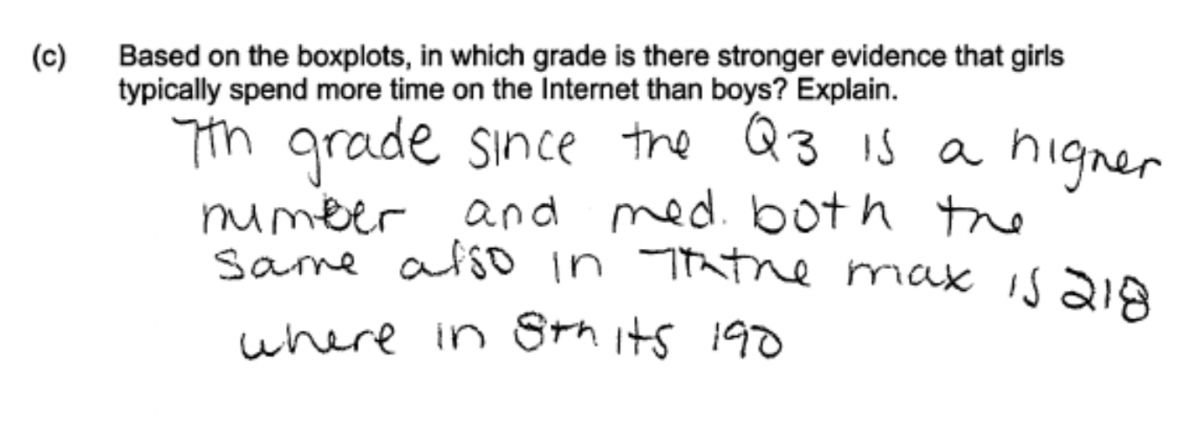 (c) Based on the boxplots, in which grade is there stronger evidence that girls
typically spend more time on the Internet than boys? Explain.
7th grade since the Q3 is a higher
number and med. both the
same also in 7th the max is 218
where in 8th its 190